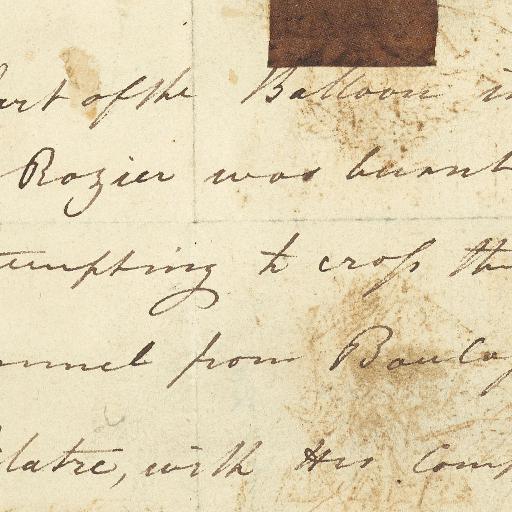 art of the Balloon in
Rozier was burnt
tempting to cross the
annel from Boulog
ilatre, with His Comp